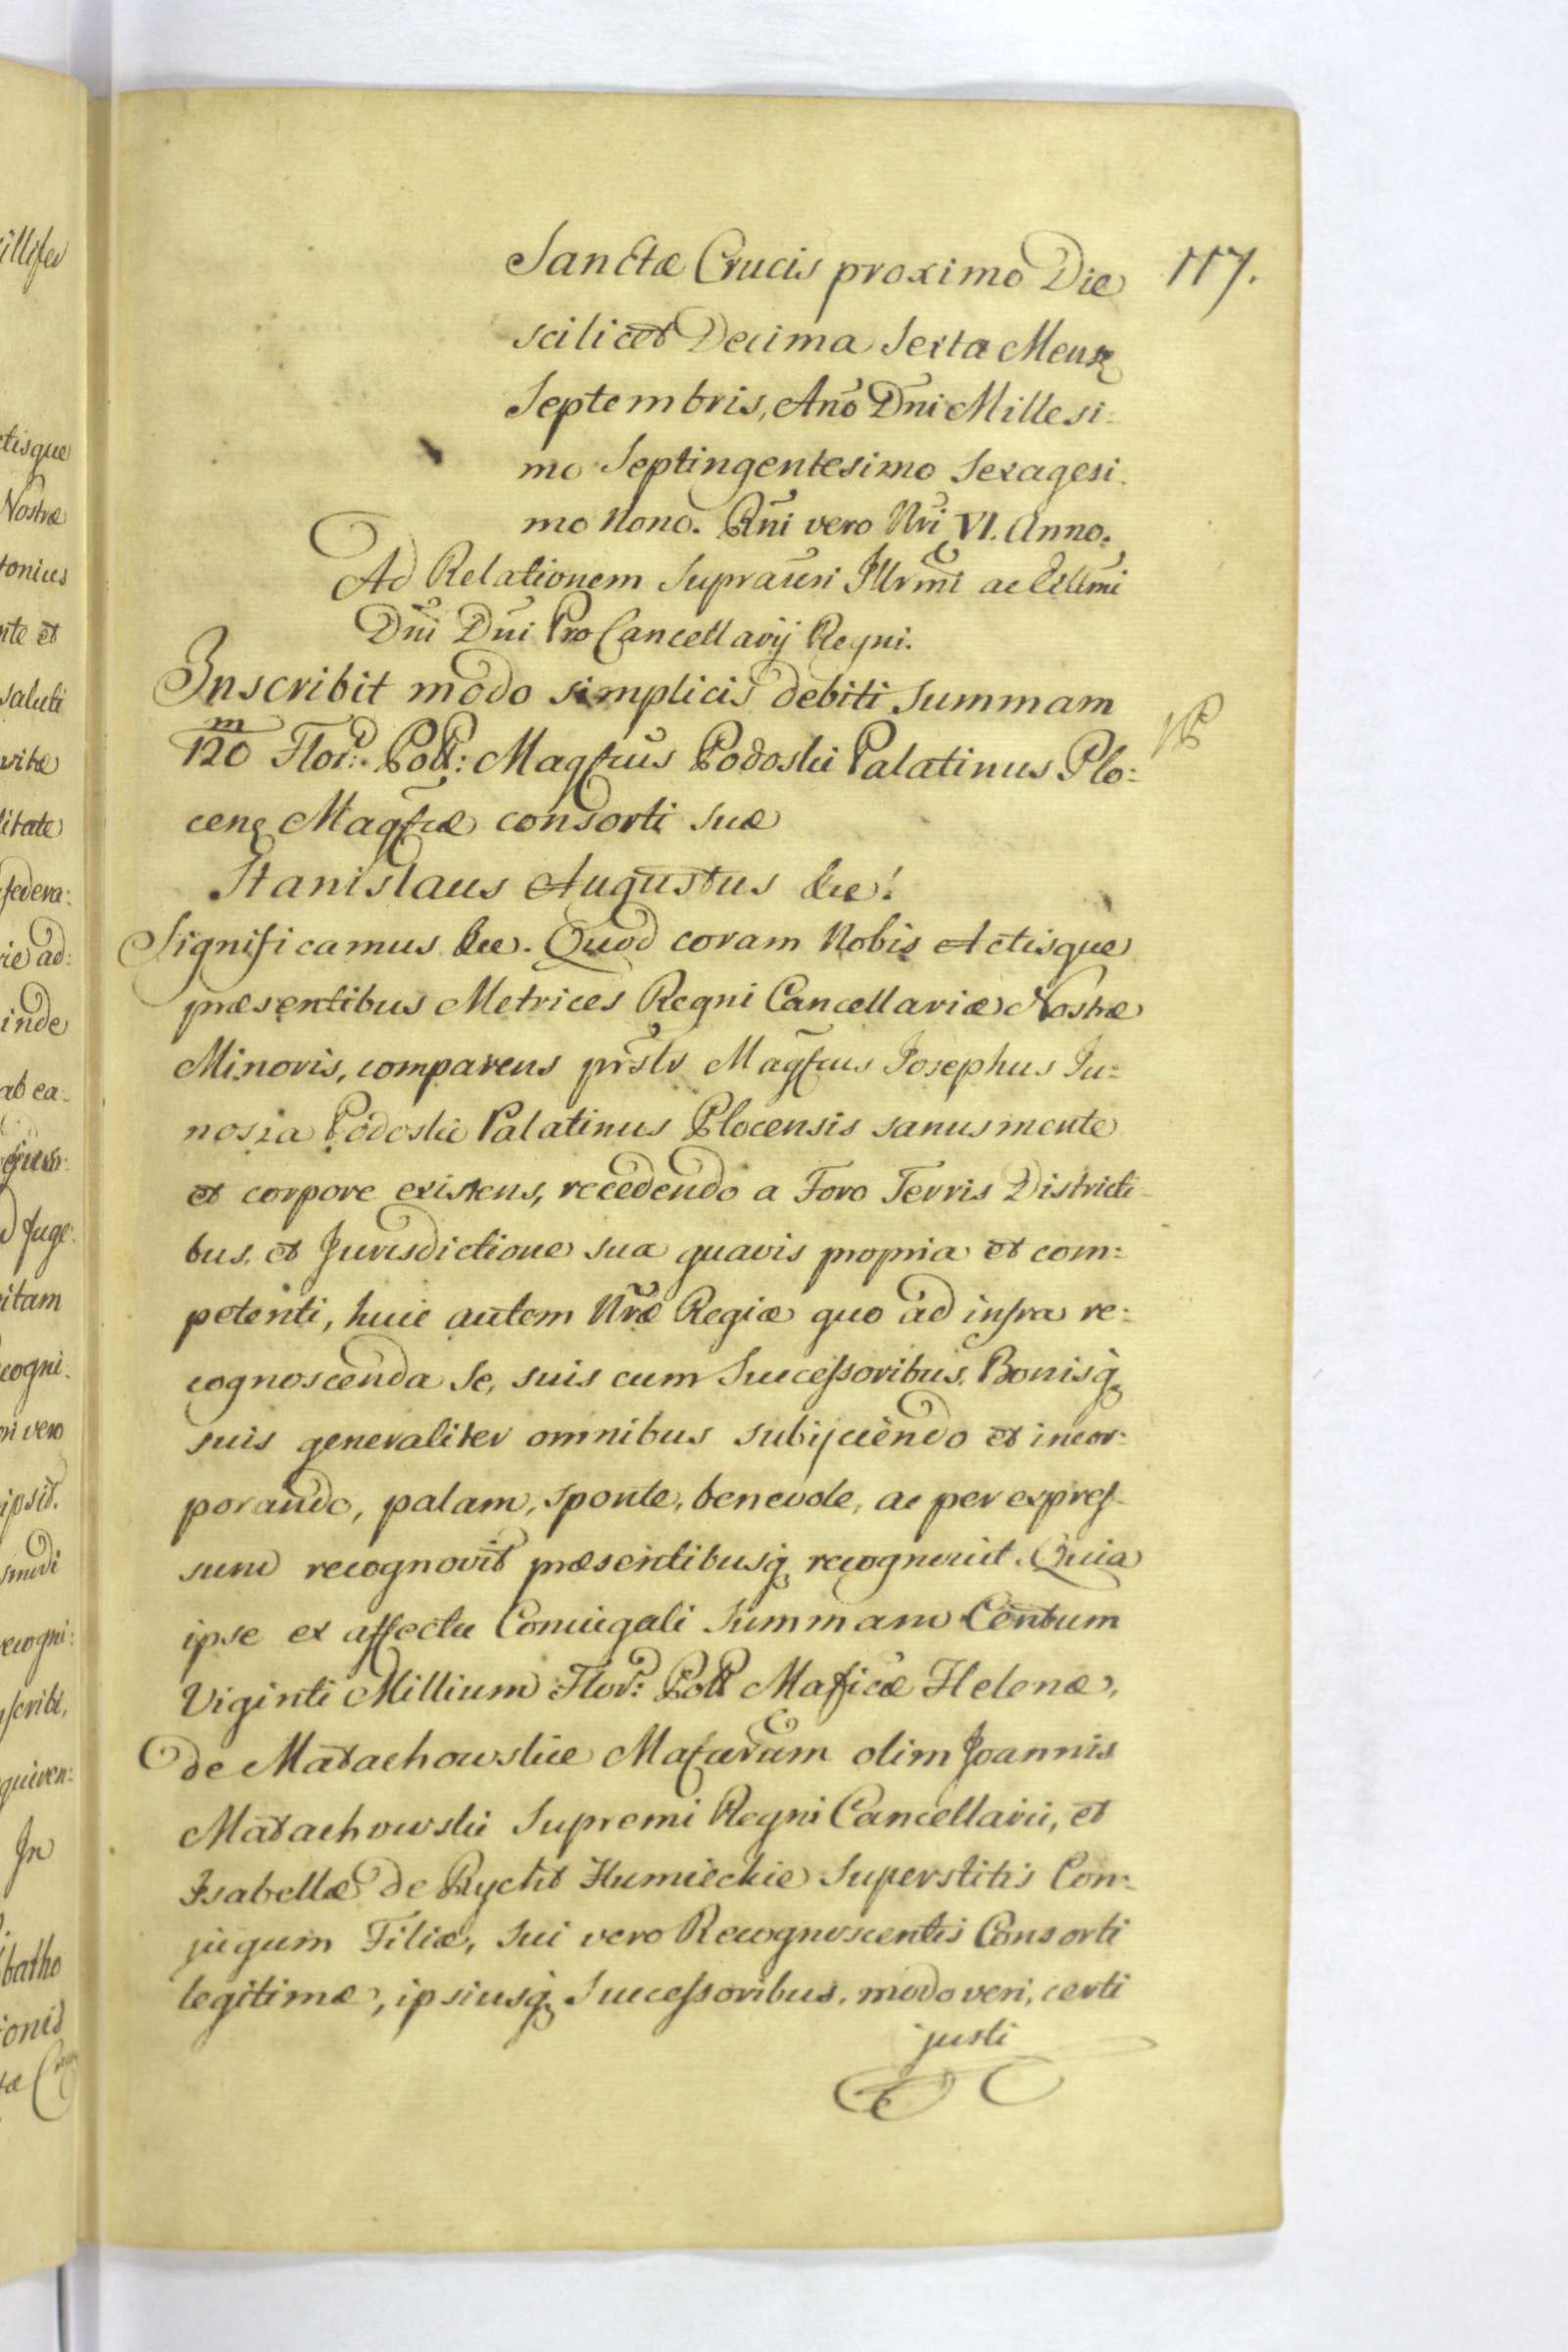 117.
Sanctæ Crucis proximo Die
scilicet Decima Sexta Mens
Septembris, Año Dñi Millesi:
mo Septingentesimo Sexagesi:
mo Nono. Rñi vero Nri VI. Anno.
Ad Relationem Suprascri Illrmi ac Exllmi
Dni Dni Pro Cancellarij Regni.
Inscribit modo simplicis debiti Summam
m
120 Flor: Poll: Magfcus Podoski Palatinus Plo:
cens Magfcæ consorti suæ
Stanislaus Augustus &c:
Significamus &c. Quod coram Nobis Actisque
præsentibus Metrices Regni Cancellariæ Nostræ
Minoris, comparens prslr Magfcus Josephus Ju:
nosza Podoski Palatinus Plocensis sanus mente
et corpore existens, recedendo a Foro Terris Districti:
bus, et Jurisdictione sua quavis propria et com:
petenti, huic autem Nræ Regiæ quo ad infra re:
cognoscenda se, suis cum Successoribus, Bonisq
suis generaliter omnibus subijciendo et incor:
porando, palam, sponte, benevole, ac per expres:
sum recognovit præsentibusq recognoscit. Quia
ipse ex affectu Coniugali Summam Centum
Viginti Millium Flor: Poll Maficæ Helenæ,
de Małachowskie Mafcorum olim Joannis
Małachowski Supremi Regni Cancellarii, et
Isabellæ de Rycht Humieckie Superstitis Con:
jugum Filiæ, sui vero Recognoscentis Consorti
legitimæ, ipsiusq Successoribus, modo veri, certi
justi
illifer
ctisque
Nostræ
tonius
nte et
saluti
vitæ
litate
federa:
rie ad:
inde
ab ea:
d fuge:
citam
cogni:
ni vero
ipsis.
smodi
recogni:
scribi,
quiren:
In
batho
ionis